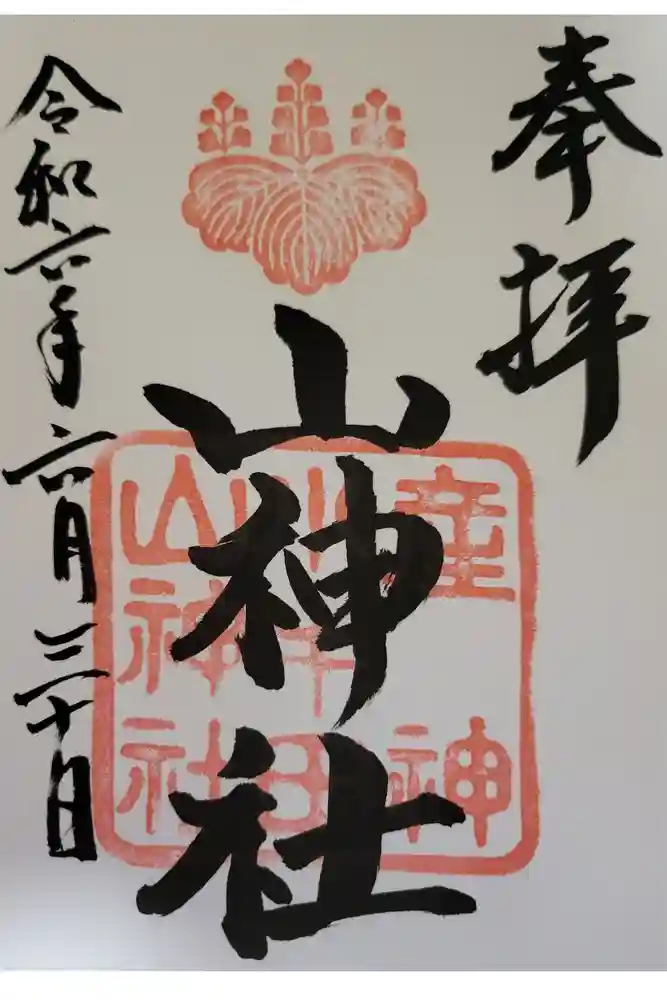 奉拝
山神社
産神
山神社
令和六年六月三十日